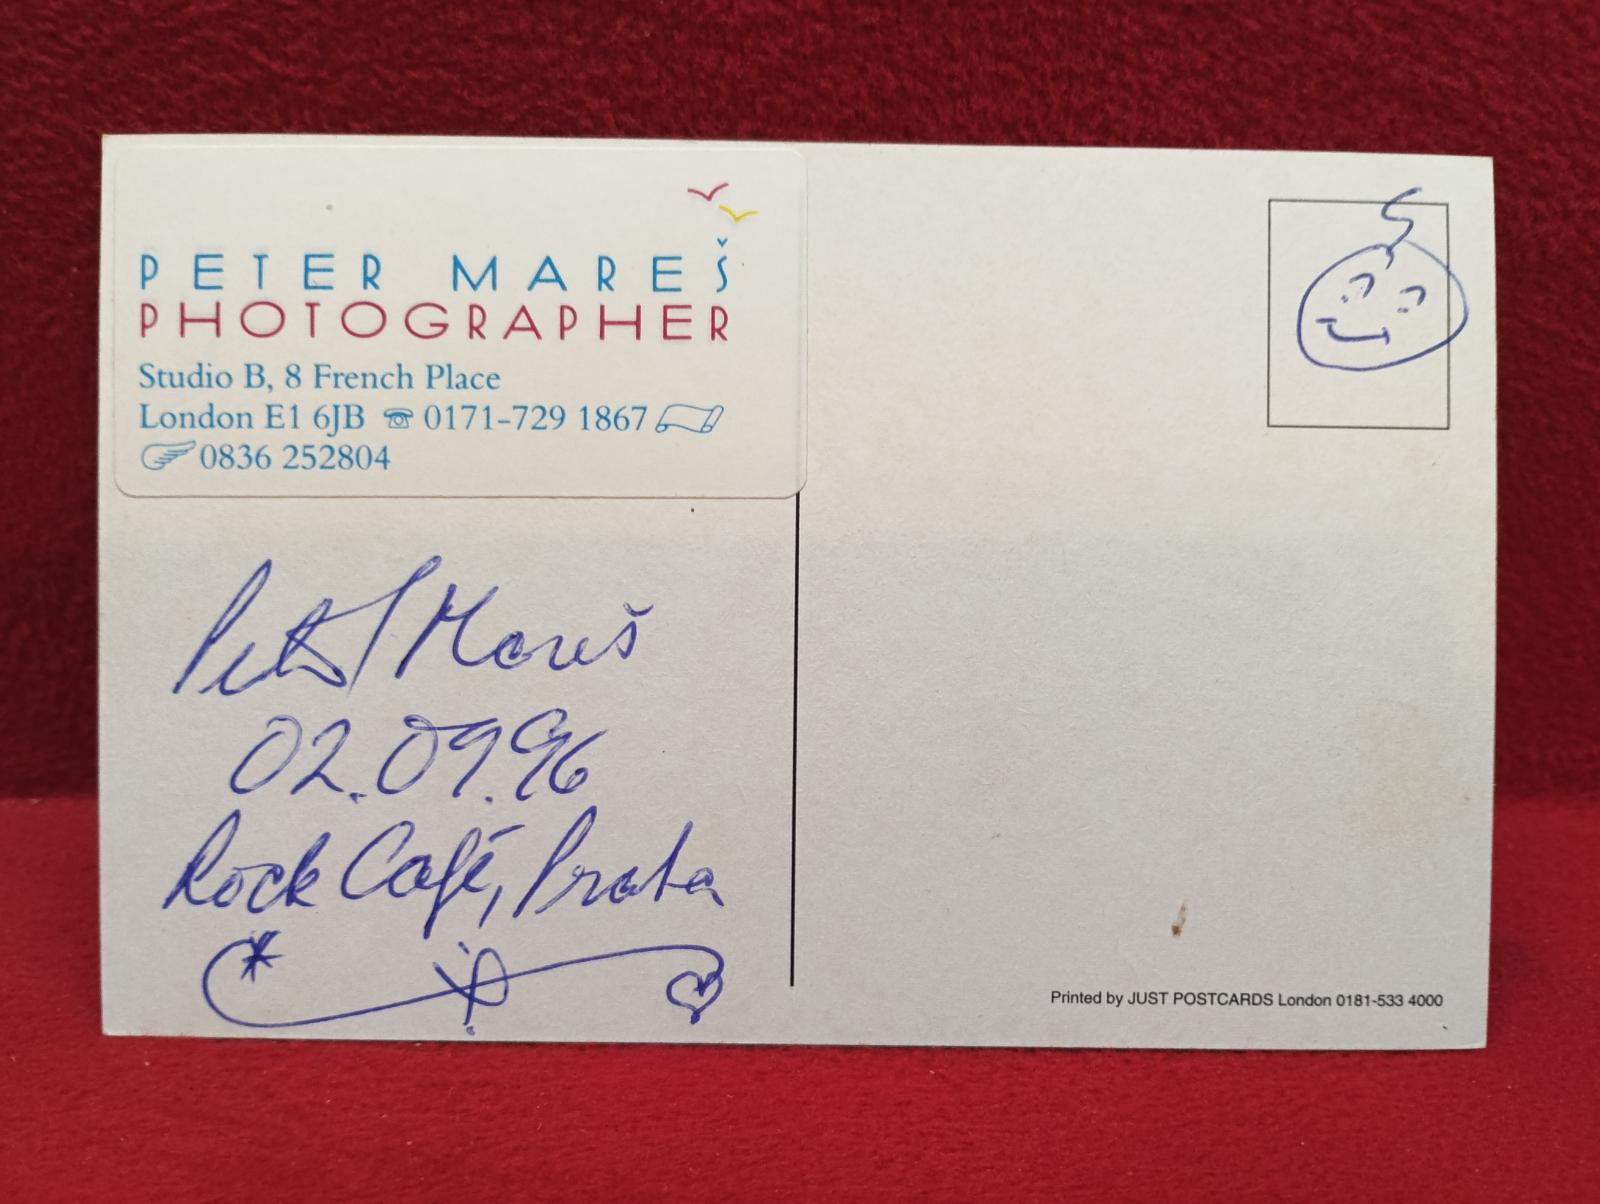 PETER MAREŠ
PHOTOGRAPHER
Studio B, 8 French Place
London E1 6JB ☎ 0171-729 1867
0836 252804
Petr Mareš
02.09.96
Rock Café, Praha
Printed by JUST POSTCARDS London 0181-533 4000